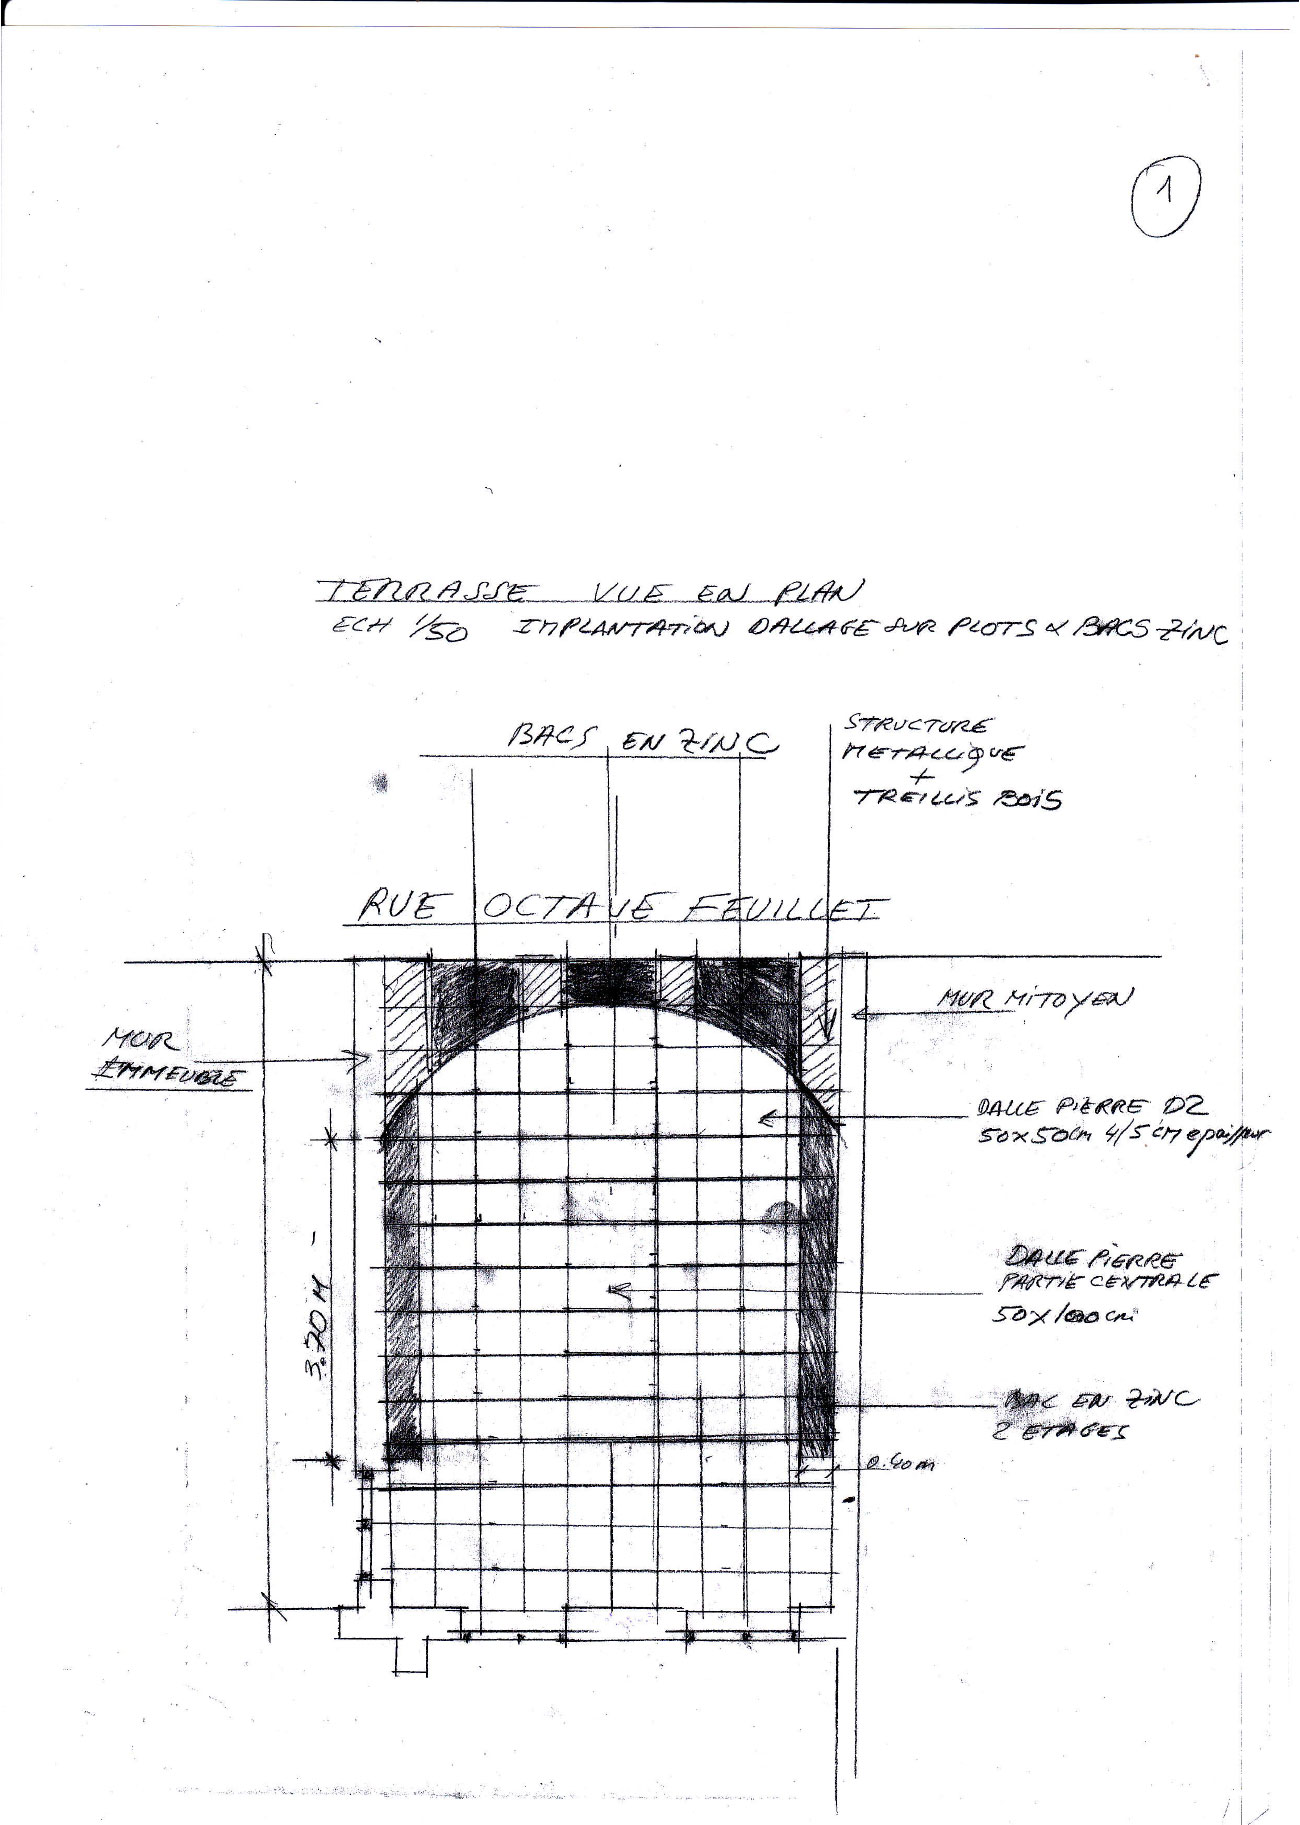 1
TERRASSE VUE EN PLAN
ECH 1/50 IMPLANTATION DALLAGE SUR PLOTS & BACS ZINC
BACS EN ZINC
STRUCTURE
METALLIQUE
+
TREILLIS BOIS
RUE OCTAVE FEUILLET
MUR MITOYEN
MUR
IMMEUBLE
DALLE PIERRE DZ
50x50cm 4/5 CM epaisseur
3.70 M
DALLE PIERRE
PARTIE CENTRALE
50x100cm
BAC EN ZINC
2 ETAGES
0.40m